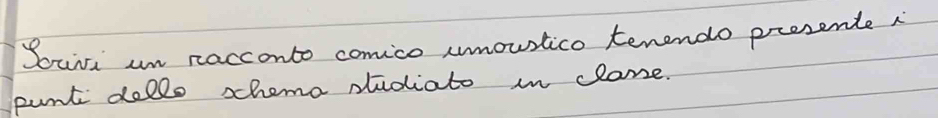 Scrivi un racconto comico umoristico tenendo presente i
punti dello schema studiato in classe.